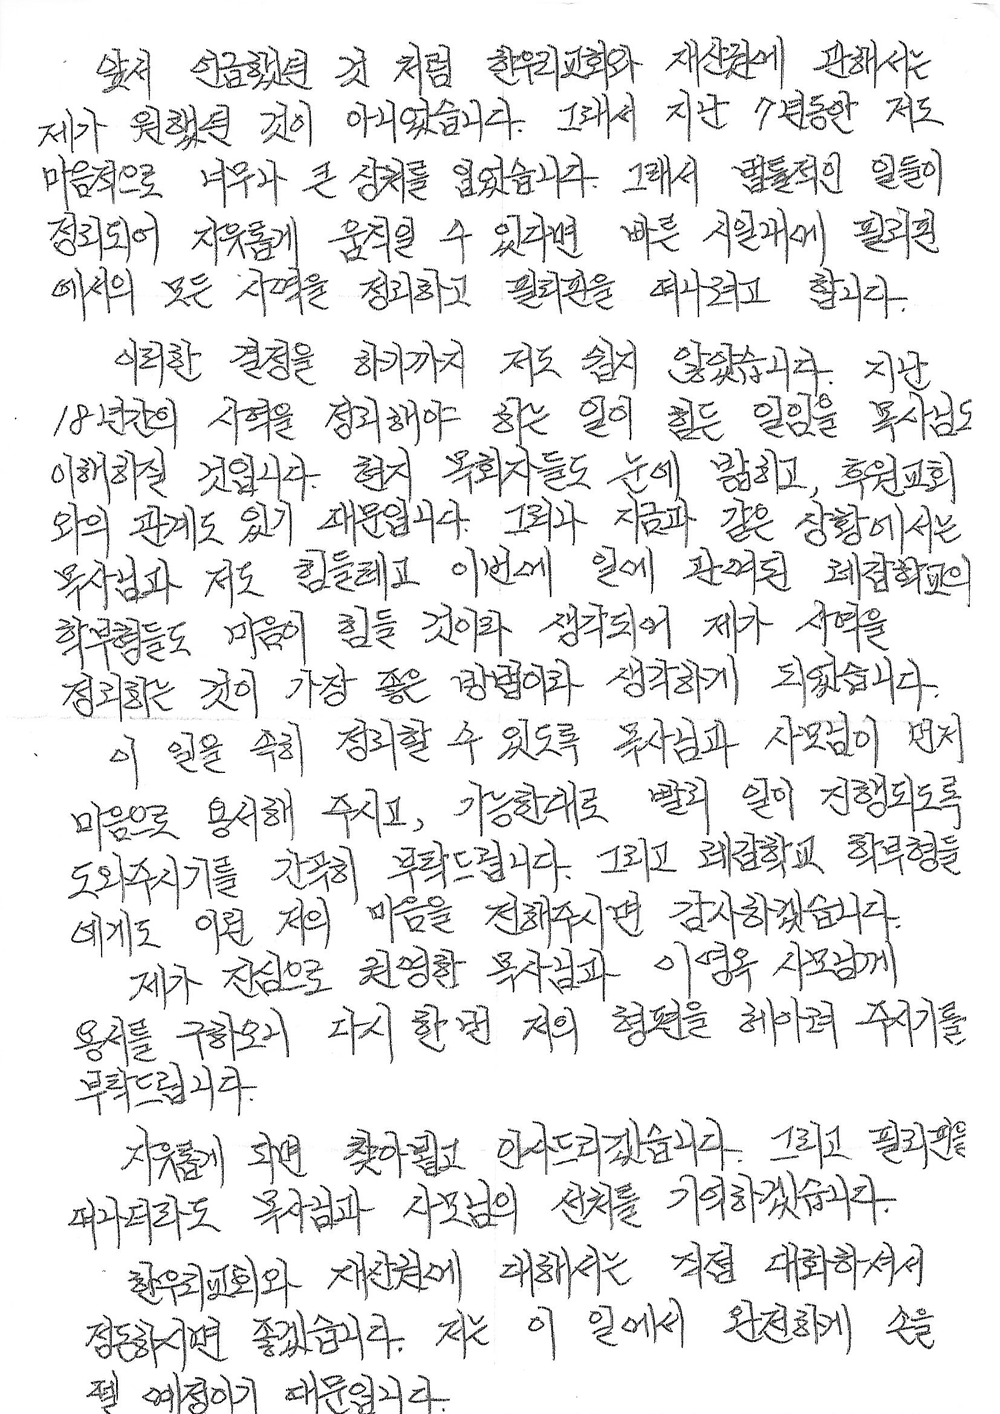 앞서 언급했던 것 처럼 한우리교회와 재산권에 관해서는
제가 원했던 것이 아니었습니다. 그래서 지난 7년동안 저도
마음적으로 너무나 큰 상처를 입었습니다. 그래서 법률적인 일들이
정리되어 자유롭게 움직일 수 있다면 빠른 시일내에 필리핀
에서의 모든 사역을 정리하고 필리핀을 떠나려고 합니다.
이러한 결정을 하기까지 저도 쉽지 않았습니다. 지난
18년간의 사역을 정리해야 하는 일이 힘든 일임을 목사님도
이해하실 것입니다. 현지 목회자들도 눈에 밟히고, 후원교회
와의 관계도 있기 때문입니다. 그러나 지금과 같은 상황에서는
목사님과 저도 힘들테고 이번에 일에 관여된 레감학교의
학부형들도 마음이 힘들 것이라 생각되어 제가 사역을
정리하는 것이 가장 좋은 방법이라 생각하게 되었습니다.
이 일을 속히 정리할 수 있도록 목사님과 사모님이 먼저
마음으로 용서해 주시고, 가능한대로 빨리 일이 진행되도록
도와주시기를 간곡히 부탁드립니다. 그리고 레감학교 학부형들
에게도 이런 저의 마음을 전해주시면 감사하겠습니다.
제가 진심으로 권영한 목사님과 이영옥 사모님께
용서를 구하오니 다시 한번 저의 형편을 헤아려 주시기를
부탁드립니다.
자유롭게 되면 찾아뵙고 인사드리겠습니다. 그리고 필리핀을
떠나더라도 목사님과 사모님의 선처를 기억하겠습니다.
한우리교회와 재산권에 대해서는 직접 대화하셔서
정돈하시면 좋겠습니다. 저는 이 일에서 완전하게 손을
뗄 예정이기 때문입니다.